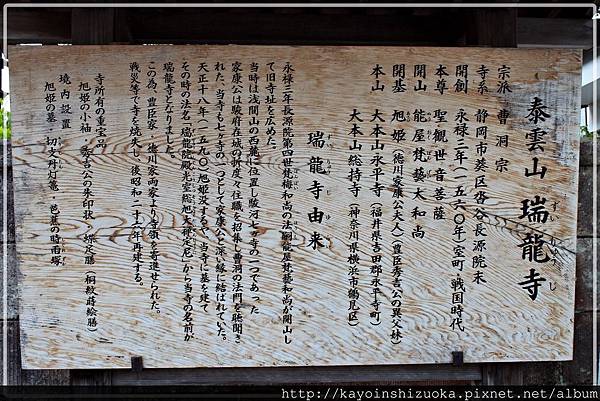 泰雲山 瑞龍寺
ずいりゅうじ
宗派 曹洞宗
寺系 静岡市葵区沓谷長源院末
開創 永禄三年(一五六〇年)室町・戦国時代
本尊 聖観世音菩薩
開山 能屋梵藝大和尚
開基 旭姫(徳川家康公夫人)(豊臣秀吉公の異父妹)
本山 大本山永平寺(福井県吉田郡永平寺町)
大本山総持寺(神奈川県横浜市鶴見区)
瑞龍寺由来
永禄三年長源院第四世梵梅和尚の法嗣能屋梵藝和尚が開山し
て旧寺址を広めた。
当時は浅間山の西麓に位置し駿河七ケ寺の一つであった
家康公は駿府在城の砌度々行職を招集し曹洞の法門を聴聞さ
れた。当寺も七ケ寺の一つとして家康公と深い縁に結ばれていた。
天正十八年(一五九〇)旭姫没するや、当寺に墓を建て
その時の法名「瑞龍院殿光室総旭大禅定尼」から当寺の名前が
瑞龍寺となりました。
この為、豊臣家・徳川家両家より各種を寄進せられた。
戦災等で寺を焼失し、後昭和二十六年再建する。
寺所有の重宝品
旭姫の小袖・家吉公の朱印状・蝶足膳(桐紋蒔絵膳)
境内設置
旭姫の墓・切支丹灯篭・芭蕉の時雨塚
http://kayoinshizuoka.pixnet.net/album